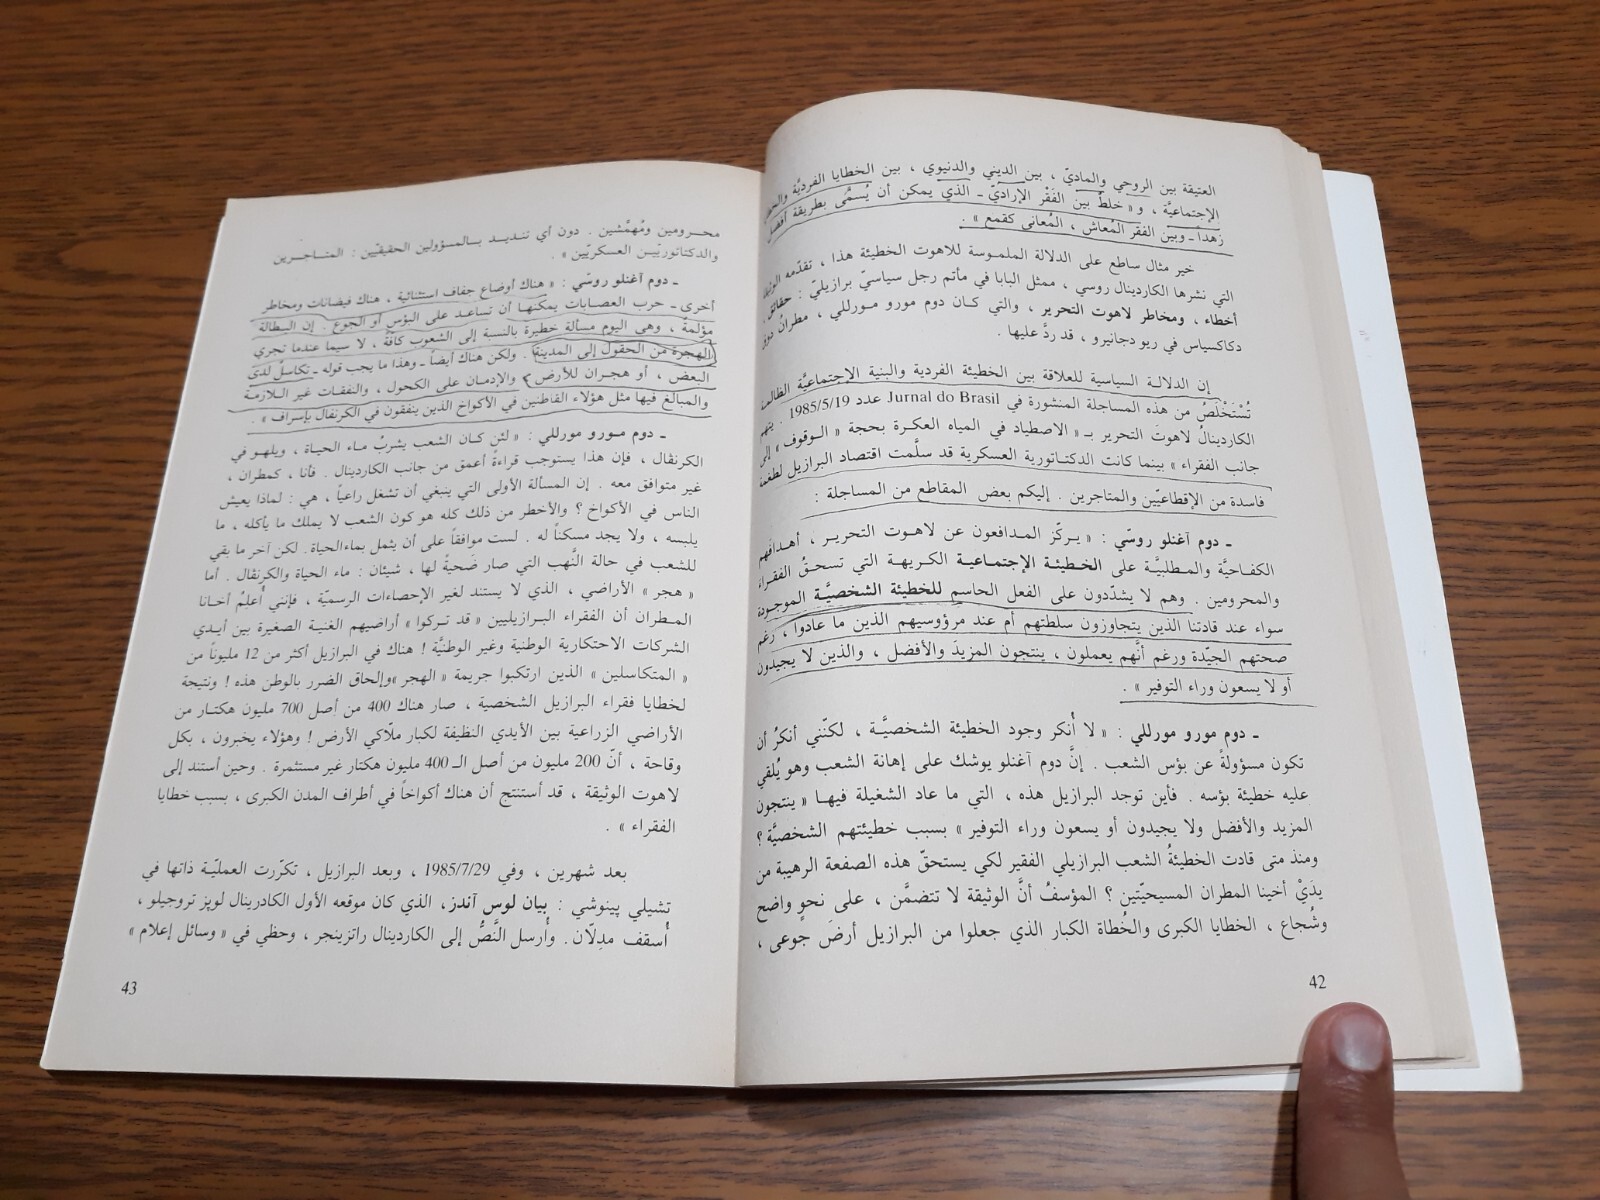 العتيقة بين الروحي والماديّ ، بين الديني والدنيوي ، بين الخطايا الفرديَّة
الإجتماعيَّة ، و« خلطٌ بين الفَقْر الإراديّ ـ الذي يمكن أن يُسمَّى بطريقة أفضل
زهداً ـ وبين الفقر المُعاش ، المُعاني كقمع » .
خير مثال ساطع على الدلالة الملموسة للاهوت الخطيئة هذا ، تقدّمه
التي نشرها الكاردينال روسي ، ممثل البابا في مأتم رجل سياسيّ برازيليّ : حقائق ،
أخطاء ، ومخاطر لاهوت التحرير ، والتي كان دوم مورو مورللي ، مطران دوق
دكاكسياس في ريو دجانيرو ، قد ردَّ عليها .
إن الدلالة السياسية للعلاقة بين الخطيئة الفردية والبنية الإجتماعيَّة الظالمة
تُسْتَخْلَصُ من هذه المساجلة المنشورة في Jurnal do Brasil عدد 1985/5/19 . يتهم
الكاردينالُ لاهوتَ التحرير بـ « الاصطياد في المياه العكرة بحجة « الوقوف » إلى
جانب الفقراء » بينما كانت الدكتاتورية العسكرية قد سلَّمت اقتصاد البرازيل لطغمة
فاسدة من الإقطاعيّين والمتاجرين . إليكم بعض المقاطع من المساجلة :
ـ دوم آغنلو روسّي : « يركّز المدافعون عن لاهوت التحرير ، أهدافهم
الكفاحيَّة والمطلبيَّة على الخطيئة الإجتماعية الكريهة التي تسحقُ الفقراء
والمحرومين . وهم لا يشدّدون على الفعل الحاسم للخطيئة الشخصيَّة الموجودة
سواء عند قادتنا الذين يتجاوزون سلطتهم أم عند مرؤوسيهم الذين ما عادوا ، رغم
صحتهم الجيّدة ورغم أنَّهم يعملون ، ينتجون المزيدَ والأفضل ، والذين لا يجيدون
أو لا يسعون وراء التوفير » .
ـ دوم مورو مورللي : « لا أُنكر وجود الخطيئة الشخصيَّة ، لكنّني أنكرُ أن
تكون مسؤولةً عن بؤس الشعب . إنَّ دوم آغنلو يوشك على إهانة الشعب وهو يُلقي
عليه خطيئة بؤسه . فأين توجد البرازيل هذه ، التي ما عاد الشغيلة فيها « ينتجون
المزيد والأفضل ولا يجيدون أو يسعون وراء التوفير » بسبب خطيئتهم الشخصيَّة ؟
ومنذ متى قادت الخطيئةُ الشعب البرازيلي الفقير لكي يستحقّ هذه الصفعة الرهيبة من
يدَيْ أخينا المطران المسيحيّتين ؟ المؤسفُ أنَّ الوثيقة لا تتضمَّن ، على نحوٍ واضح
وشُجاع ، الخطايا الكبرى والخُطاة الكبار الذي جعلوا من البرازيل أرضَ جوعى ،
42
محرومين ومُهمَّشين . دون أي تنديد بالمسؤولين الحقيقيّين : المتاجرين
والدكتاتوريّين العسكريّين » .
ـ دوم آغنلو روسّي : « هناك أوضاع جفاف استثنائية ، هناك فيضانات ومخاطر
أخرى ـ حرب العصابات يمكنها أن تساعد على البؤس أو الجوع . إن البطالة
مؤلمة ، وهي اليوم مسألة خطيرة بالنسبة إلى الشعوب كافَّة ، لا سيما عندما تجري
الهجرة من الحقول إلى المدينة . ولكن هناك أيضاً ـ وهذا ما يجب قوله ـ تكاسلٌ لدى
البعض ، أو هجران للأرض ، والإدمان على الكحول ، والنفقات غير اللازمة
والمبالغ فيها مثل هؤلاء القاطنين في الأكواخ الذين ينفقون في الكرنڤال بإسراف » .
ـ دوم مورو مورللي : « لئن كان الشعب يشربُ ماء الحياة ، ويلهو في
الكرنڤال ، فإن هذا يستوجب قراءةً أعمق من جانب الكاردينال . فأنا ، كمطران ،
غير متوافق معه . إن المسألة الأولى التي ينبغي أن تشغل راعياً ، هي : لماذا يعيش
الناس في الأكواخ ؟ والأخطر من ذلك كله هو كون الشعب لا يملك ما يأكله ، ما
يلبسه ، ولا يجد مسكناً له . لست موافقاً على أن يثمل بماءالحياة. لكن آخر ما بقي
للشعب في حالة النَّهب التي صار ضَحيةً لها ، شيئان : ماء الحياة والكرنڤال . أما
« هجر » الأراضي ، الذي لا يستند لغير الإحصاءات الرسميّة ، فإنني أعلمُ أخانا
المطران أن الفقراء البرازيليين « قد تركوا » أراضيهم الغنية الصغيرة بين أيدي
الشركات الاحتكارية الوطنية وغير الوطنيَّة ! هناك في البرازيل أكثر من 12 مليوناً من
« المتكاسلين » الذين ارتكبوا جريمة « الهجر »وإلحاق الضرر بالوطن هذه ! ونتيجة
لخطايا فقراء البرازيل الشخصية ، صار هناك 400 من أصل 700 مليون هكتار من
الأراضي الزراعية بين الأيدي النظيفة لكبار ملّاكي الأرض ! وهؤلاء يخبرون ، بكل
وقاحة ، أنّ 200 مليون من أصل الـ 400 مليون هكتار غير مستثمرة . وحين أستند إلى
لاهوت الوثيقة ، قد أستنتج أن هناك أكواخاً في أطراف المدن الكبرى ، بسبب خطايا
الفقراء » .
بعد شهرين ، وفي 1985/7/29 ، وبعد البرازيل ، تكرّرت العمليّة ذاتها في
تشيلي پينوشي : بيان لوس آندز، الذي كان موقعه الأول الكادرينال لوپز تروجيلو ،
أُسقف مدِلّان. وأُرسل النَّصُّ إلى الكاردينال راتزينجر ، وحظي في « وسائل إعلام »
43